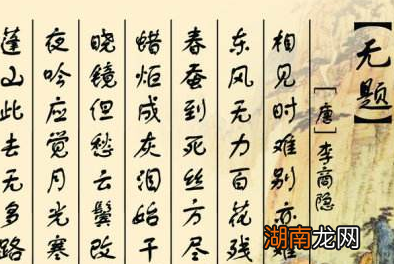 【无题】
[唐]李商隐
相见时难别亦难
东风无力百花残
春蚕到死丝方尽
蜡炬成灰泪始干
晓镜但愁云鬓改
夜吟应觉月光寒
蓬山此去无多路
湖南龙网